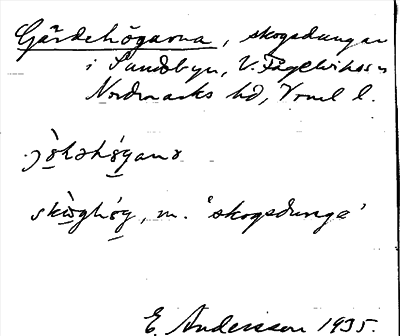 Gärdehögarna, skogsdungar
i Sundsbyn, V. Fågelviks sn
Nordmarks hd, Vrml l.
skòghög, m. 'skogsdunge'
E. Andersson 1935.